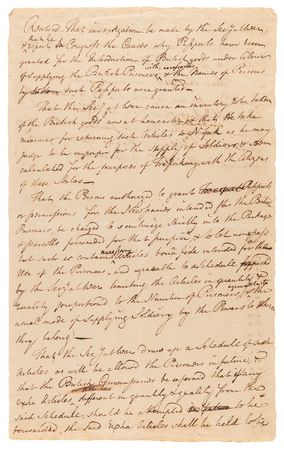 Resolved, That investigation be made by the Secy at War,
& report to Congress the Causes why Passports have been
granted for the Introduction of British goods under Colour
of supplying the British Prisoners, & the Names of Persons
by whom such Passports were granted.
That the Secy at War cause an inventory to be taken
of the British goods now at Lancaster, & that he take
measures for returning such Articles to N York as he may
judge to be improper for the Supply of Soldiers, &
calculated for the purposes of Trafficking with the Citizens
of these States.
That the Persons authorized to grant Passports
or permissions for the Necessaries intended for the British
Prisoners, be charged to scrutinize strictly into the Packages
& parcels presented for that purpose, & to let none pass
but such as contain necessary Articles bona fide intended for the
Use of the Prisoners, and agreeable to a Schedule
by the Secy at War limiting the Articles in quantity &
quality proportioned to the Number of Prisoners, & the
usual mode of supplying Soldiery by the Powers to whom
they belong.
That the Secy at War draw up a Schedule of such
Articles as will be allowed the Prisoners in future, &
that the British be informed that if any
extra Articles, different in quantity & quality from the
said Schedule, should be attempted to be
forwarded, the said extra Articles shall be held to be